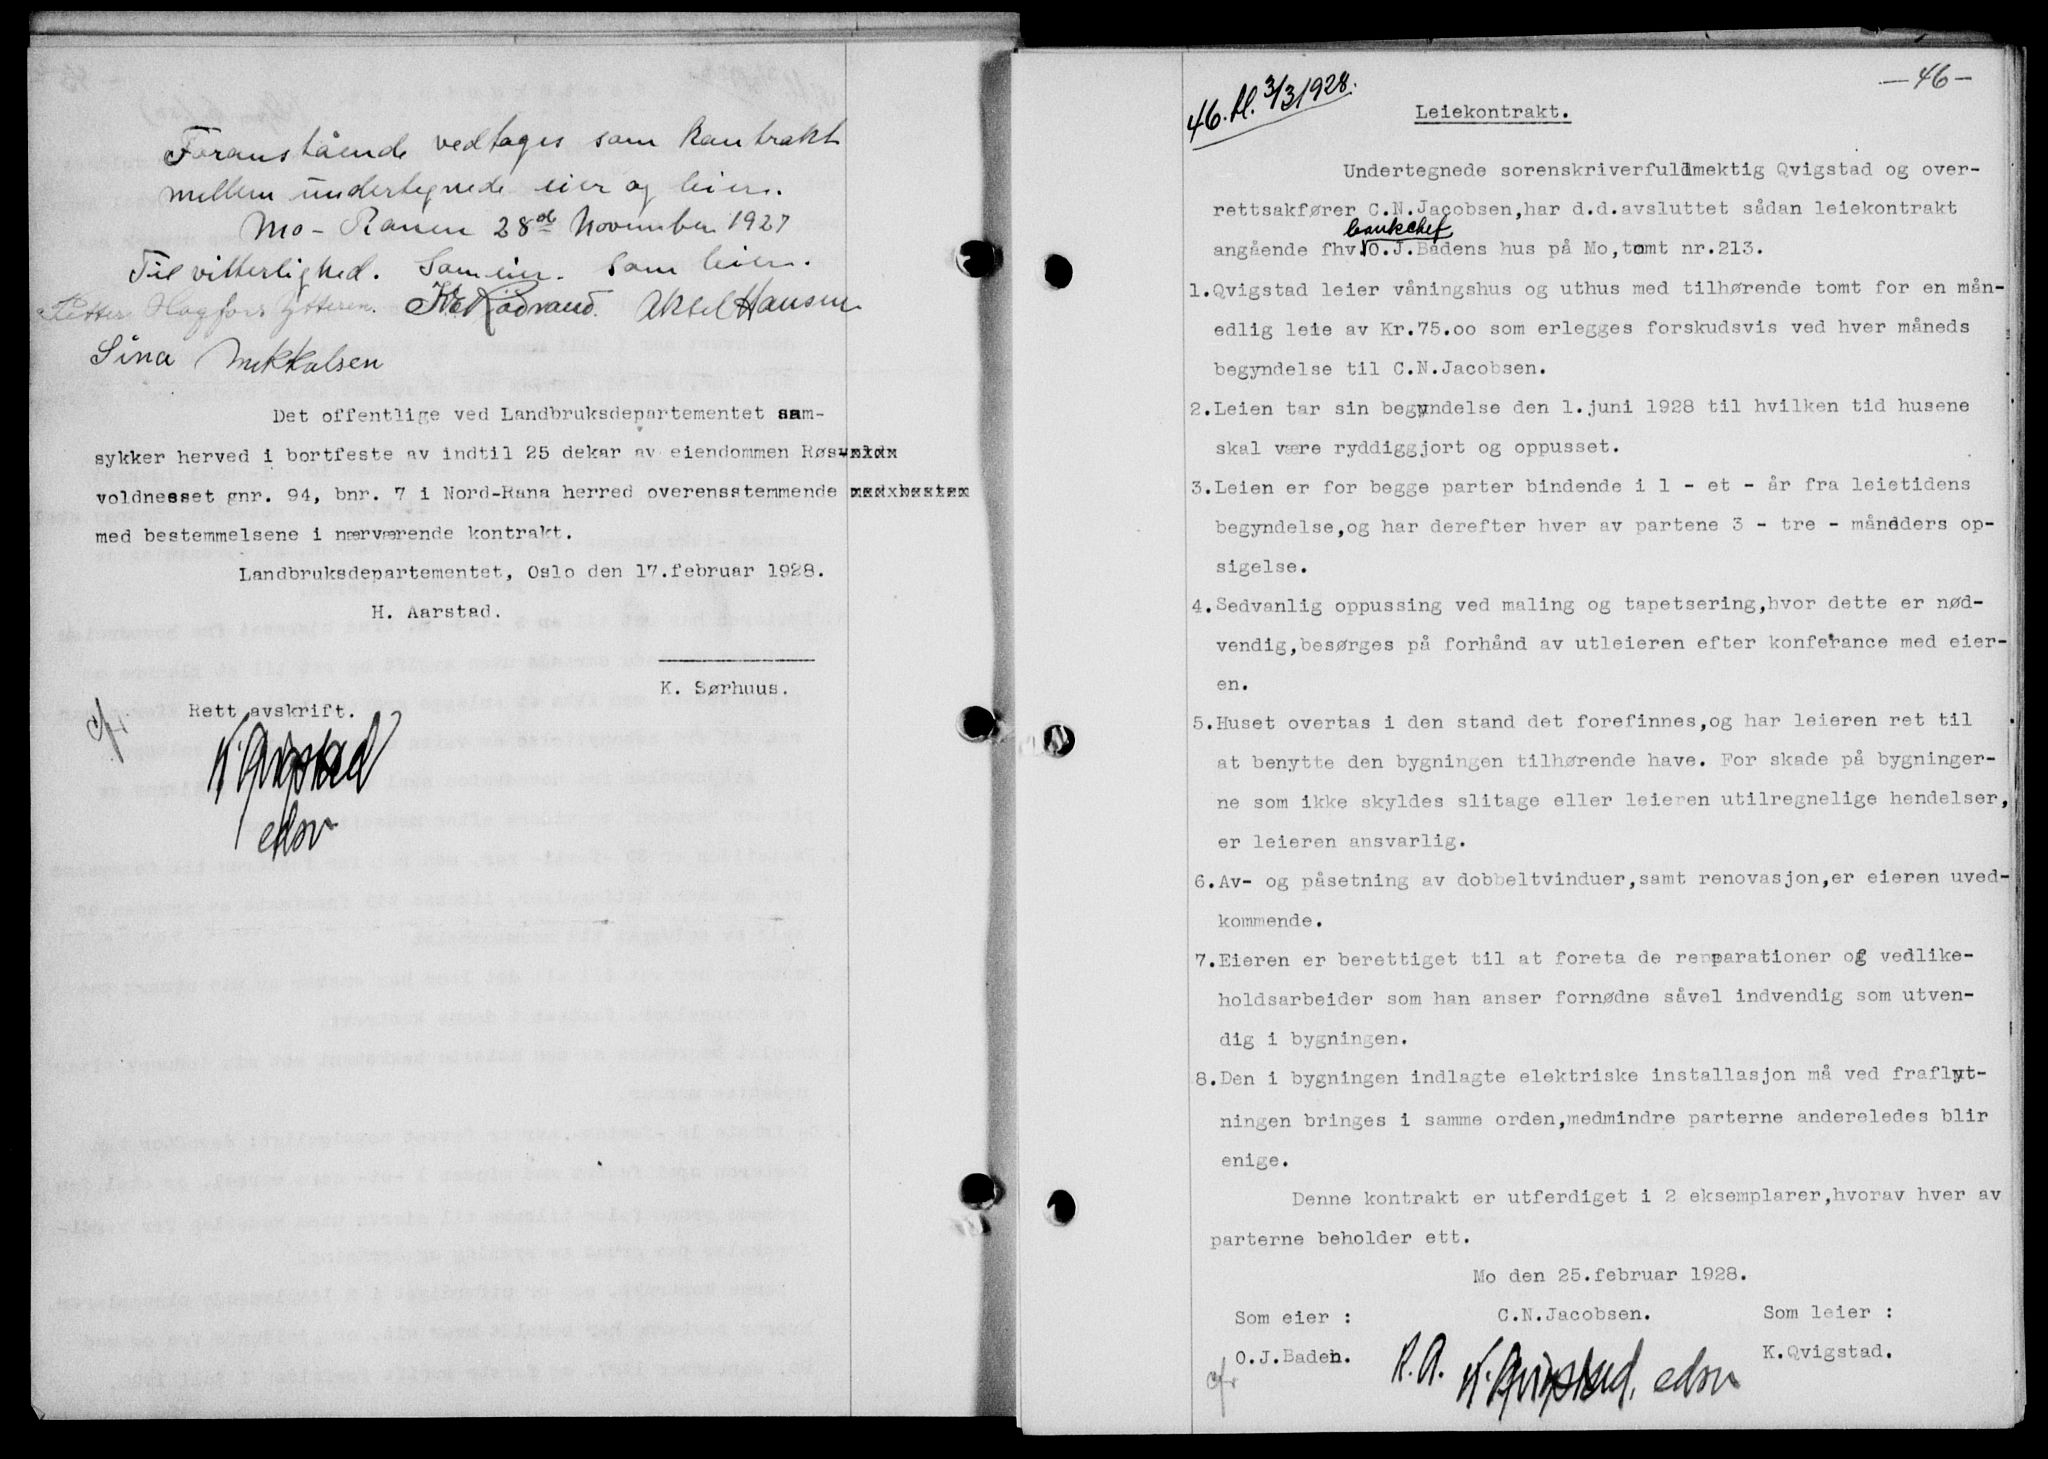 Foranstående vedtages som kontrakt
mellem undertegnede eier og leier.
Mo - Ranen 28de November 1927
Til vitterlighed. Som eier. Som leier.
Petter Hagfors Ytteren. Aksel Hansen
Sina Mikkalsen
Det offentlige ved Landbruksdepartementet sam-
sykker herved i bortfeste av indtil 25 dekar av eiendommen Røs
voldnesset gnr. 94, bnr. 7 i Nord-Rana herred overensstemmende
med bestemmelsene i nærværende kontrakt.
Landbruksdepartementet, Oslo den 17.februar 1928.
H. Aarstad.
K. Sørhuus.
Rett avskrift.
K. Qvigstad
edsv
-46-
46. tl. 3/3 1928.
Leiekontrakt.
Undertegnede sorenskriverfuldmektig Qvigstad og over-
rettsakfører C.N.Jacobsen,har d.d.avsluttet sådan leiekontrakt
bankchef
angående fhv.O.J.Badens hus på Mo,tomt nr.213.
1.Qvigstad leier våningshus og uthus med tilhørende tomt for en mån-
edlig leie av Kr.75.oo som erlegges forskudsvis ved hver måneds
begyndelse til C.N.Jacobsen.
2.Leien tar sin begyndelse den 1.juni 1928 til hvilken tid husene
skal være ryddiggjort og oppusset.
3.Leien er for begge parter bindende i 1 - et - år fra leietidens
begyndelse,og har derefter hver av partene 3 - tre - måneders op-
sigelse.
4.Sedvanlig oppussing ved maling og tapetsering,hvor dette er nød-
vendig,besørges på forhånd av utleieren efter konferance med eier-
en.
5.Huset overtas i den stand det forefinnes,og har leieren ret til
at benytte den bygningen tilhørende have. For skade på bygninger-
ne som ikke skyldes slitage eller leieren utilregnelige hendelser,
er leieren ansvarlig.
6.Av- og påsetning av dobbeltvinduer,samt renovasjon,er eieren uved-
kommende.
7.Eieren er berettiget til at foreta de reparationer og vedlike-
holdsarbeider som han anser fornødne såvel indvendig som utven-
dig i bygningen.
8.Den i bygningen indlagte elektriske installasjon må ved fraflyt-
ningen bringes i samme orden,medmindre parterne andereledes blir
enige.
Denne kontrakt er utferdiget i 2 eksemplarer,hvorav hver av
parterne beholder ett.
Mo den 25.februar 1928.
Som eier : C.N.Jacobsen. Som leier :
O.J.Baden. R.A. K. Qvigstad, edsv K.Qvigstad.